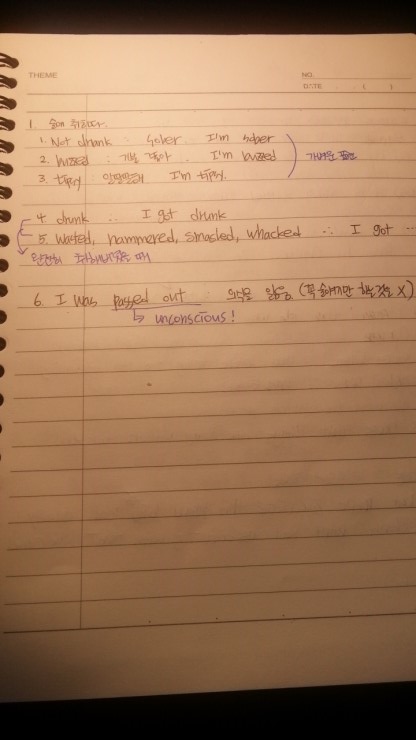 THEME
NO.
DATE ( )
1. 술에 취하다.
1. Not drunk : Sober. I'm sober
2. buzzed : 기분 좋아 . I'm buzzed
가벼운 표현
3. tipsy 알딸딸해 I'm tipsy.
4. drunk : I got drunk
5. Wasted, hammered, smacled, whacked : I got ...
완전히 취해버렸을 때
6. I was passed out 의식을 잃음. (꼭 술이지만 하는것은 X)
↳ unconscious!